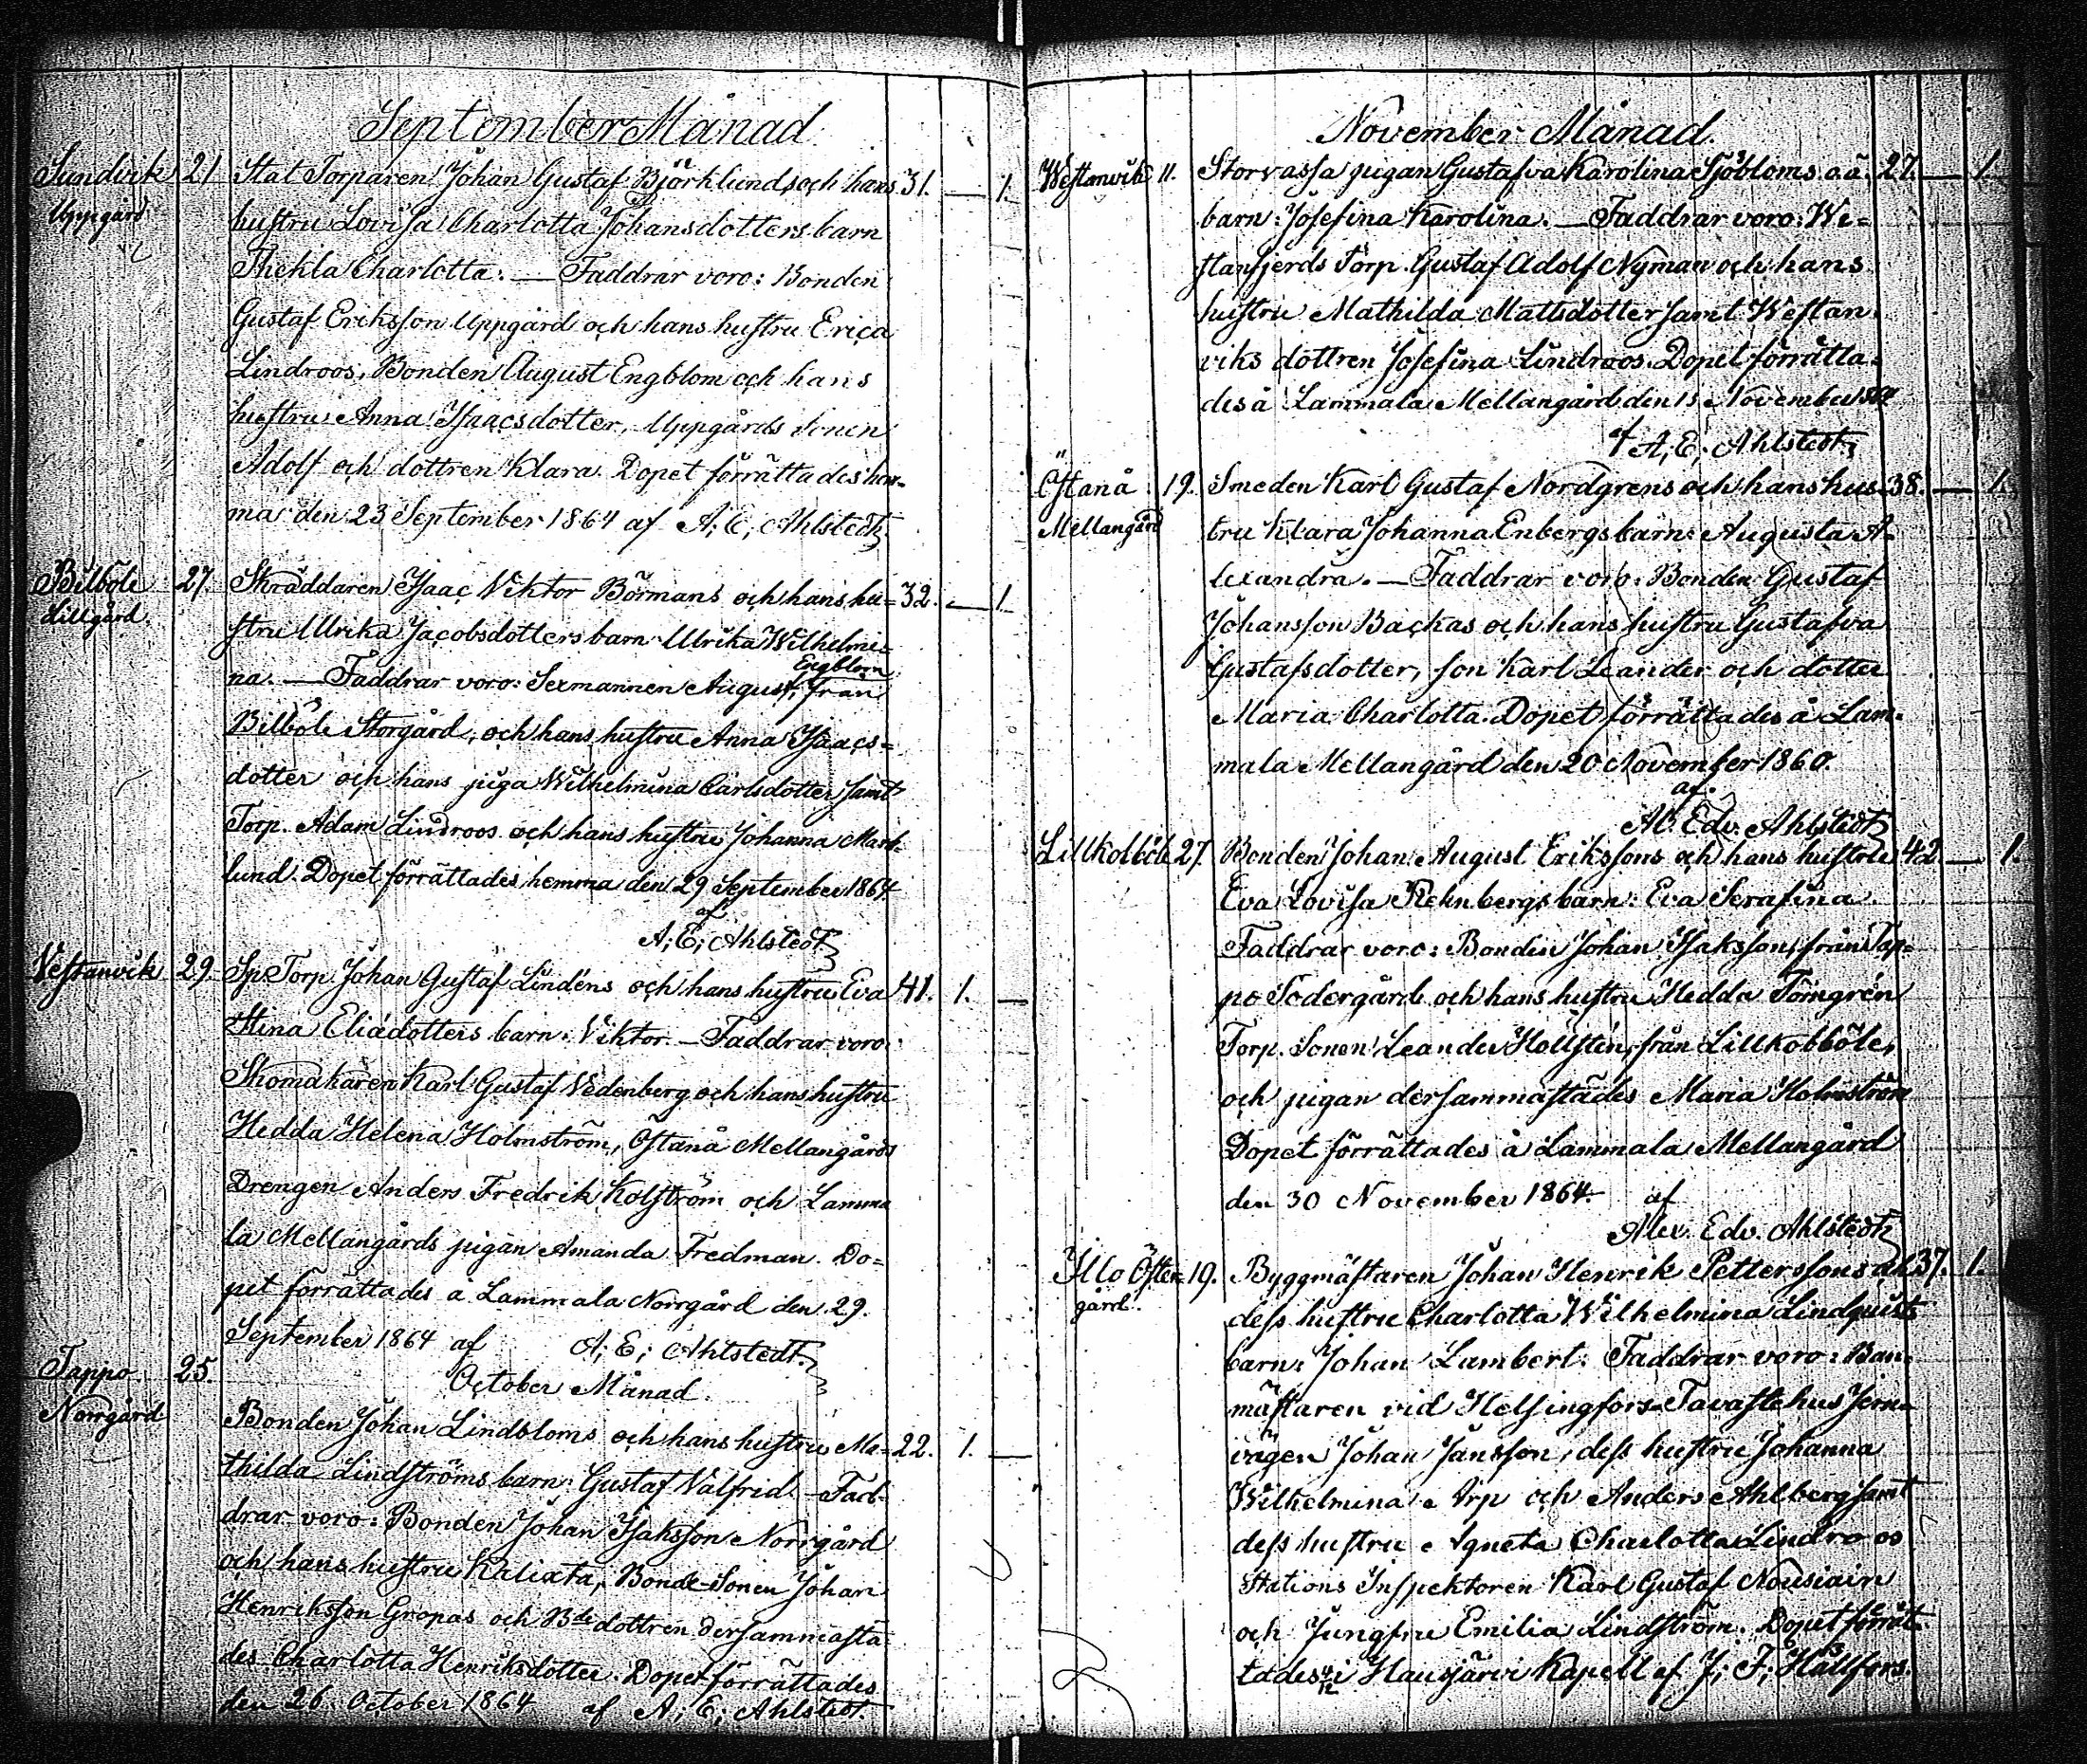 September Månad
Sundvik 21 Stat Torparen Johan Gustaf Björklunds och hans 31. — 1.
Uppgård hustru Lovisa Charlotta Johansdotters barn
Thekla Charlotta. — Faddrar voro: Bonden
Gustaf Eriksson Uppgård och hans hustru Erica
Lindroos, Bonden August Engblom och hans
hustru Anna Isaacsdotter, Uppgårds sonen
Adolf och dottren Klara. Dopet förrättades hem-
ma den 23 September 1864 af A; E; Ahlstedt.
Bilböle 27. Skräddaren Isaac Viktor Börmans och hans hu= 32. — 1.
Lillgård. stru Ulrika Jacobsdotters barn Ulrika Wilhelmi=
Engblom
na. — Faddrar voro: Sexmannen August, från
Bilböle Storgård, och hans hustru Anna Isaacs=
dotter och hans piga Wilhelmina Carlsdotter samt
Torp. Adam Lindroos och hans hustru Johanna Mark-
lund. Dopet förrättades hemma den 29 September 1864
af
A; E; Ahlstedt
Vestanvik 29. Sp Torp. Johan Gustaf Lindéns och hans hustru Eva 41. 1. —
Stina Eliædotters barn: Viktor. — Faddrar voro:
Skomakaren Karl Gustaf Vedenberg och hans hustru
Hedda Helena Holmström, Östanå Mellangårds
Drengen Anders Fredrik Kolström och Lamma
la Mellangårds pigan Amanda Fredman. Do=
pet förrättades å Lammala Norrgård den 29.
September 1864 af A; E; Ahlstedt.
Tappo 25.
October Månad.
Norrgård Bonden Johan Lindbloms och hans hustru Ma= 22. 1. —
thilda Lindströms barn: Gustaf Valfrid. — Fad-
drar voro: Bonden Johan Isaksson Norrgård
och hans hustru, Bonde-Sonen Johan
Henriksson Gropas och Bde dottren dersammastä
des Charlotta Henriksdotter. Dopet förrättades
den 26. October 1864 af A; E; Ahlstedt.
November Månad.
Westanvik 11. Storvassa pigan Gustafva Karolina Sjöbloms o. ä. 27. — 1.
barn: Josefina Karolina. — Faddrar voro: We=
stanfjerds Torp. Gustaf Adolf Nyman och hans
hustru Mathilda Mattsdotter samt Westan
viks dottren Josefina Lindroos. Dopet förrätta=
des å Lammala Mellangård den 13 November 1864
af A; E; Ahlstedt;
Östanå 19. Smeden Karl Gustaf Nordgrens och hans hus- 38. — 1.
Mellangård tru Klara Johanna Enbergs barn: Augusta A-
lexandra. — Faddrar voro: Bonden Gustaf
Johansson Backas och hans hustru Gustafva
Gustafsdotter, son Karl Leander och dotter
Maria Charlotta. Dopet förrättades å Lam-
mala Mellangård den 20 November 1860.
af.
Al. Edv. Ahlstedt
Lillkolböle 27. Bonden Johan August Erikssons och hans hustru 42. — 1.
Eva Lovisa Rehnbergs barn: Eva Serafina.
Faddrar voro: Bonden Johan Isaksson, från Tap-
po Södergård och hans hustru Hedda Törngrén
Torp. Sonen Leander Hollstén, från Lillkobböle,
och pigan dersammastädes Maria Holmström
Dopet förrättades å Lammala Mellangård
den 30 November 1864 af
Alex. Edv. Ahlstedt
Illo Öster= 19. Byggmästaren Johan Henrik Petterssons och 37. 1.
gård. dess hustru Charlotta Wilhelmina Lindquists
barn: Johan Lambert. Faddrar voro: Ban-
mästaren vid Helsingfors-Tavastehus Jern-
vägen Johan Jansson, dess hustru Johanna
Wilhelmina Arp och Anders Ahlberg samt
dess hustru Agneta Charlotta Lindroos
Stations Inspektoren Karl Gustaf Nousiain
och Jungfru Emilia Lindström. Dopet förrät-
tades 4/12 i Hausjärvi Kapell af J; F; Hällfors.